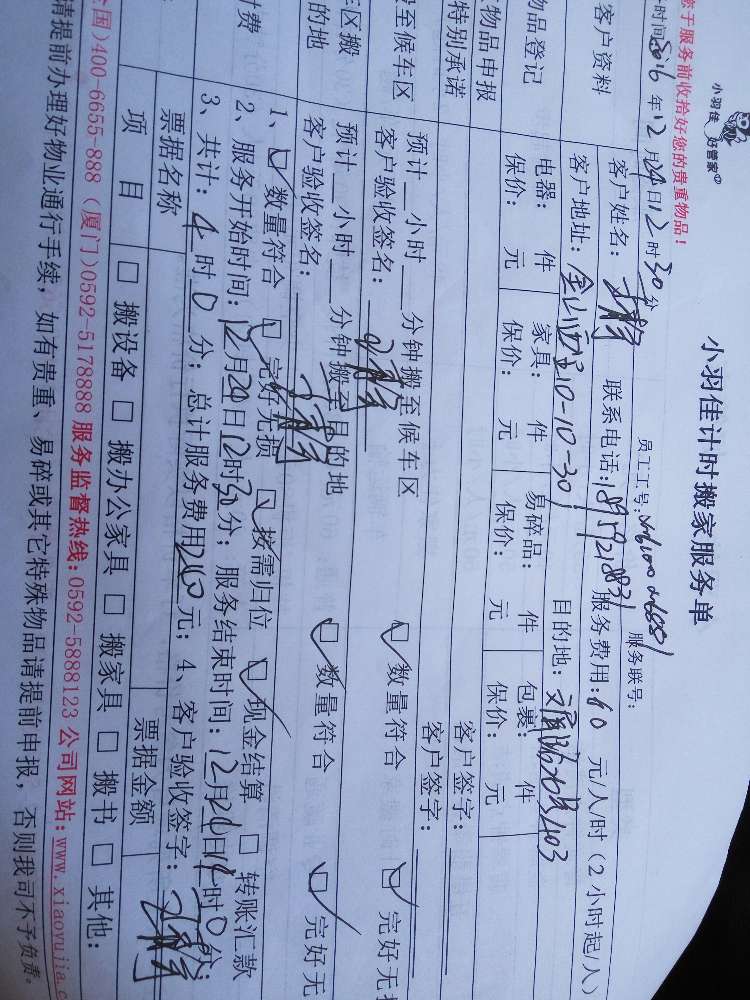 小羽佳
好管家
小羽佳计时搬家服务单
您于服务前收拾好您的贵重物品！
员工工号： 服务联号：
时间2016年12月24日12时30分
客户资料
客户姓名： 联系电话： 服务费用：60 元/人/时（2小时起/人）
客户地址： 10-10-301 目的地：
物品登记
电器： 件 家具： 件 易碎品： 件 包裹： 件
保价： 元 保价： 元 保价： 元 保价： 元
物品申报 客户签字：
特别承诺 客户签字：
至候车区
预计__小时__分钟搬至候车区
客户验收签名： 数量符合 完好无
车区搬
的地
预计__小时__分钟搬至目的地
客户验收签名： 数量符合 完好无
付费
1、数量符合 完好无损 按需归位 现金结算 转账汇款
2、服务开始时间：12月24日12时30分；服务结束时间：12月24日 时0分；
3、共计：4时0分；总计服务费用240元；4、客户验收签字：
票据名称 票据金额
项 目 搬设备 搬办公家具 搬家具 搬书 其他：
全国)400-6655-888（厦门)0592-5178888 服务监督热线：0592-5888123 公司网站：www.xiaoyujia.c
请提前办理好物业通行手续；如有贵重、易碎或其它特殊物品请提前申报，否则我司不予负责。